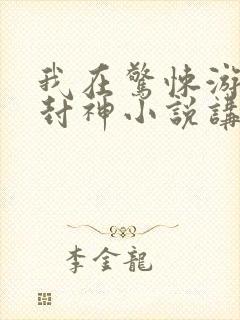 我在驚悚游
封神小說講
李金龍